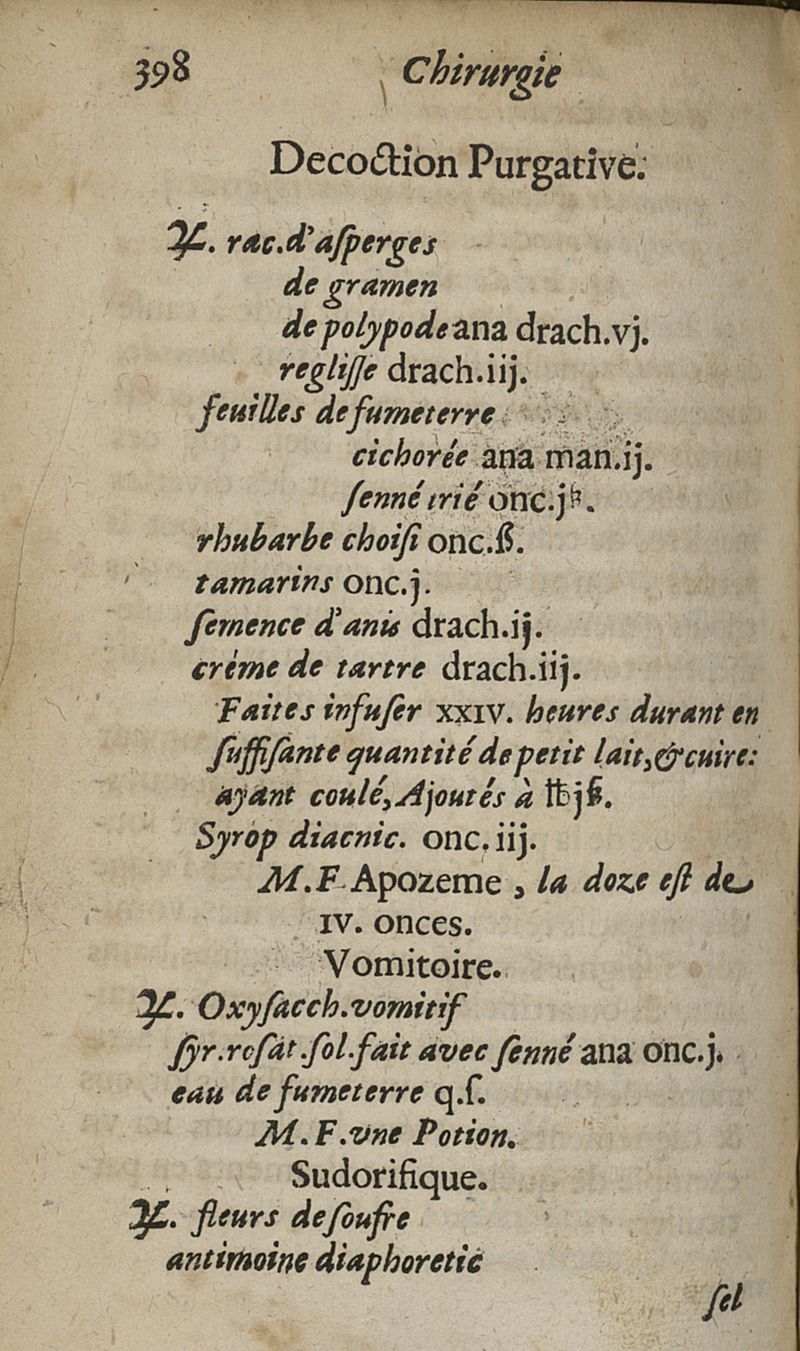 398 Chirurgie
Decoction Purgative.
℞. rac.d'aſperges
de gramen
de polypode ana drach.vj.
regliſſe drach.iij.
feuilles de fumeterre
cichorée ana man.ij.
ſenné trié onc.jß.
rhubarbe choiſi onc.ß.
tamarins onc.j.
ſemence d'anis drach.ij.
crême de tartre drach.iij.
Faites infuſer xxIV. heures durant en
ſuffiſante quantité de petit lait,& cuire:
ayant coulé, Ajoutés à ℔jß.
Syrop diacnic. onc. iij.
M.F. Apozeme, la doze eſt de
IV. onces.
Vomitoire.
℞. Oxyſacch.vomitif
ſyr.roſat.ſol.fait avec ſenné ana onc.j.
eau de fumeterre q.ſ.
M.F.vne Potion.
Sudorifique.
℞. fleurs de ſoufre
antimoine diaphoretic
ſel